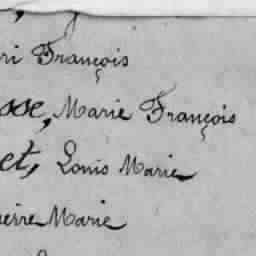 ri François
sse, Marie François
et, Louis Marie
ierre Marie